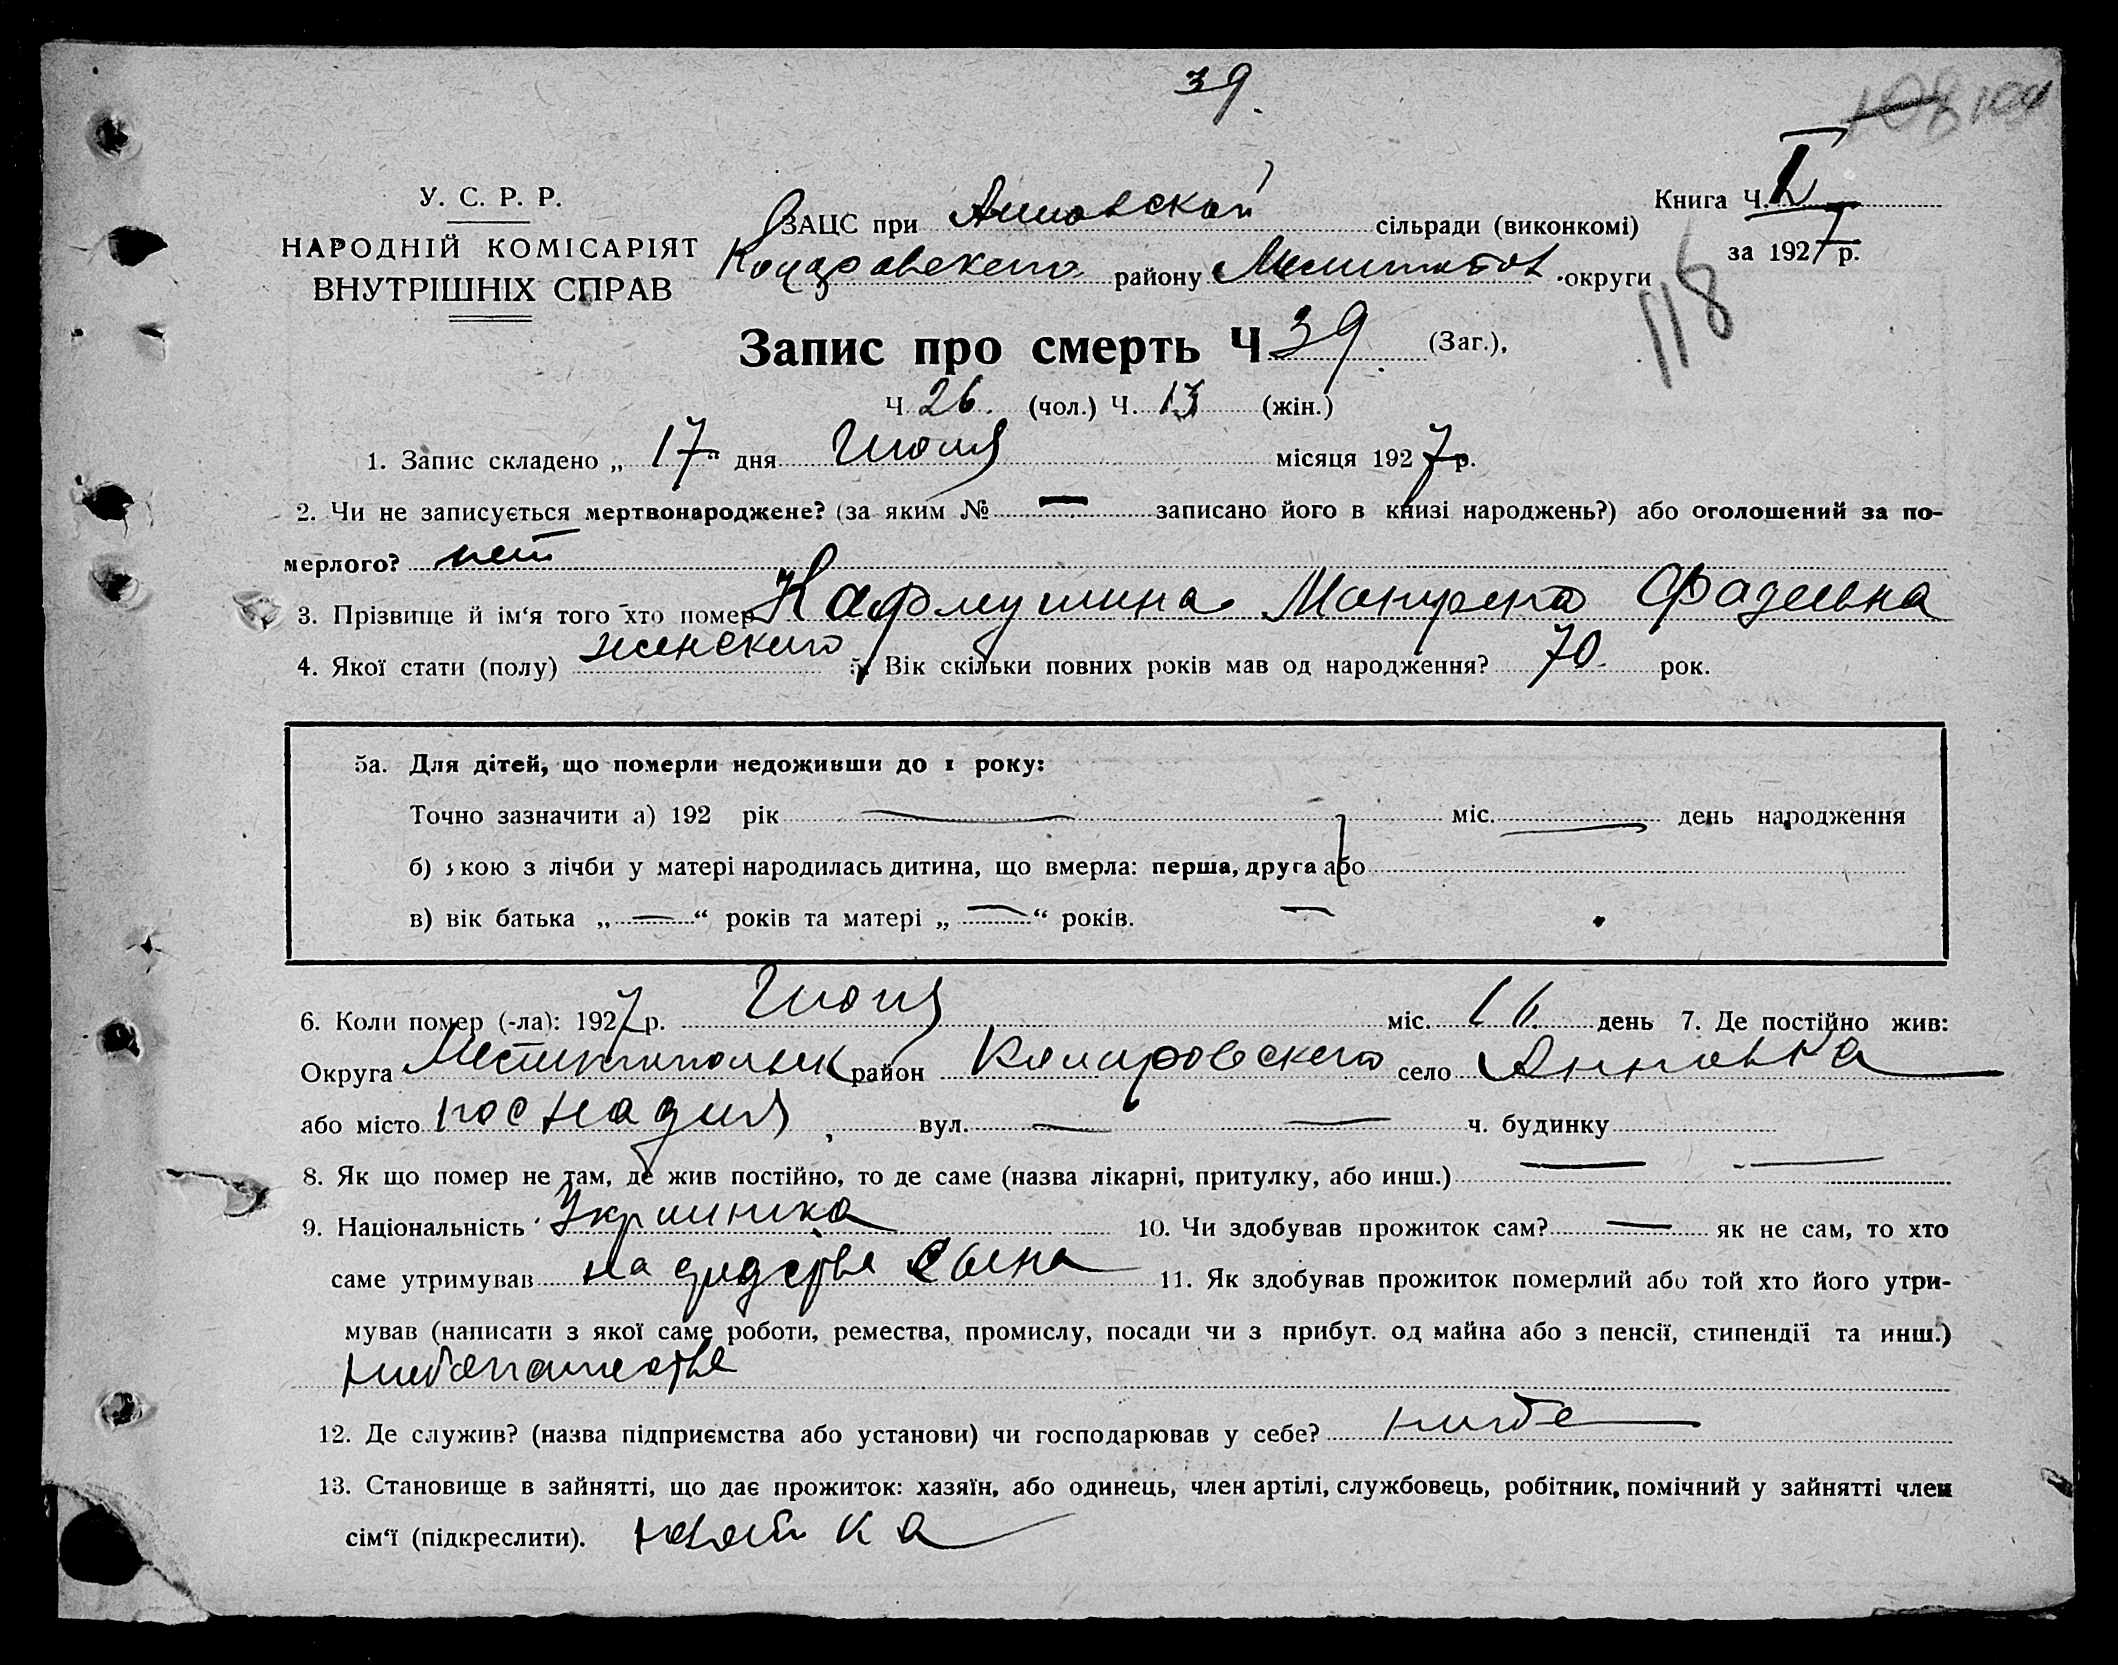 39.
108 104
У. С. Р. Р.
НАРОДНІЙ КОМІСАРІЯТ
ВНУТРІШНІХ СПРАВ
ЗАЦС при Анновской сільради (виконкомі)
району округи
Книга Ч. I
за 1927 р.
118
Запис про смерть Ч 39. (Заг.),
Ч 26. (чол.) Ч. 13 (жін.)
1. Запис складено „ 17 “ дня Июля місяця 1927 р.
2. Чи не записується мертвонароджене? (за яким № — записано його в книзі народжень?) або оголошений за по-
мерлого? нет
3. Прізвище й ім‘я того хто помер Фадеевна
4. Якої стати (полу) женского 5. Вік скільки повних років мав од народження? 70. рок.
5а. Для дітей, що померли недоживши до 1 року:
Точно зазначити а) 192 рік — міс. — день народження
б) якою з лічби у матері народилась дитина, що вмерла: перша, друга або
в) вік батька „ — “ років та матері „ — “ років. —
6. Коли помер (-ла): 1927 р. Июля міс. 16. день 7. Де постійно жив:
Округа район село Анновка
або місто вул. — — ч. будинку
8. Як що помер не там, де жив постійно, то де саме (назва лікарні, притулку, або инш.) — —
9. Національність Украинка 10. Чи здобував прожиток сам? — як не сам, то хто
саме утримував на средства сына 11. Як здобував прожиток померлий або той хто його утри-
мував (написати з якої саме роботи, ремества, промислу, посади чи з прибут. од майна або з пенсії, стипендії та инш.)
хлебопашества
12. Де служив? (назва підприємства або установи) чи господарював у себе? нигде
13. Становище в зайнятті, що дає прожиток: хазяїн, або одинець, член артілі, службовець, робітник, помічний у зайнятті член
сім‘ї (підкреслити). хозяйка